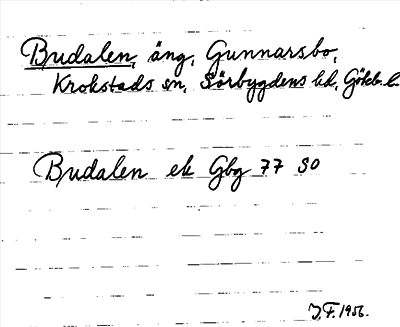 Budalen, äng, Gunnarsbo,
Krokstads sn, Sörbygdens hd, Göteb. l.
Budalen ek Gbg 77 SO
J.F. 1956.